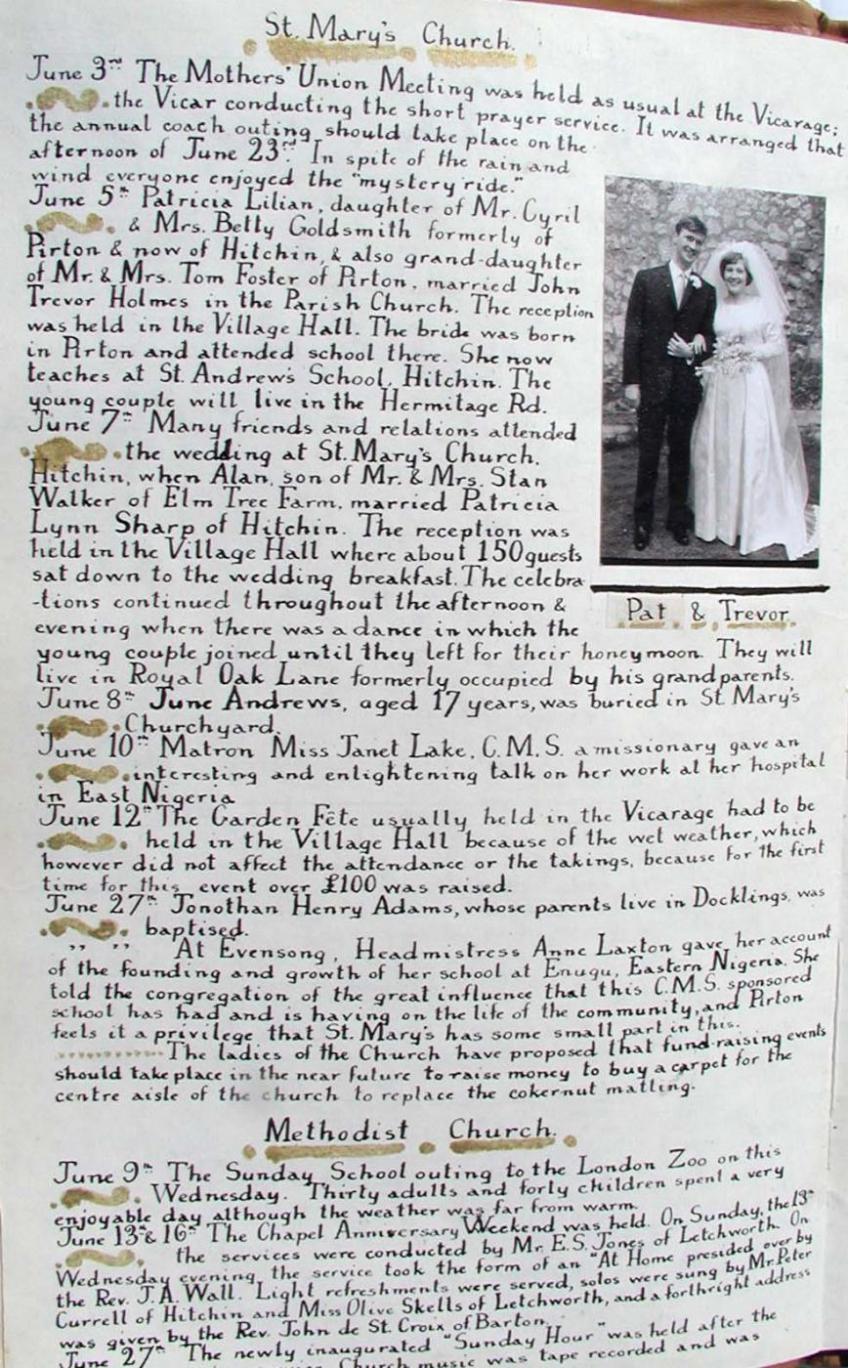 St. Mary's Church.
June 3rd The Mothers' Union Meeting was held as usual at the Vicarage;
the Vicar conducting the short prayer service. It was arranged that
the annual coach outing should take place on the
afternoon of June 23rd. In spite of the rain and
wind everyone enjoyed the "mystery ride."
June 5th Patricia Lilian, daughter of Mr. Cyril
& Mrs. Betty Goldsmith formerly of
Pirton & now of Hitchin, & also grand-daughter
of Mr. & Mrs. Tom Foster of Pirton, married John
Trevor Holmes in the Parish Church. The reception
was held in the Village Hall. The bride was born
in Pirton and attended school there. She now
teaches at St. Andrew's School, Hitchin. The
young couple will live in the Hermitage Rd.
June 7th Many friends and relations attended
the wedding at St. Mary's Church,
Hitchin, when Alan, son of Mr. & Mrs. Stan
Walker of Elm Tree Farm, married Patricia
Lynn Sharp of Hitchin. The reception was
held in the Village Hall where about 150 guests
sat down to the wedding breakfast. The celebra
-tions continued throughout the afternoon &
evening when there was a dance in which the
young couple joined until they left for their honeymoon. They will
live in Royal Oak Lane formerly occupied by his grandparents.
Pat & Trevor.
June 8th June Andrews, aged 17 years, was buried in St. Mary's
Churchyard.
June 10th Matron Miss Janet Lake, C.M.S. a missionary gave an
interesting and enlightening talk on her work at her hospital
in East Nigeria
June 12th The Garden Fête usually held in the Vicarage had to be
held in the Village Hall because of the wet weather, which
however did not affect the attendance or the takings, because for the first
time for this event over £100 was raised.
June 27th Jonothan Henry Adams, whose parents live in Docklings, was
baptised.
" " At Evensong, Headmistress Anne Laxton gave her account
of the founding and growth of her school at Enugu, Eastern Nigeria. She
told the congregation of the great influence that this C.M.S. sponsored
school has had and is having on the life of the community, and Pirton
feels it a privilege that St. Mary's has some small part in this.
.......... The ladies of the Church have proposed that fund-raising events
should take place in the near future to raise money to buy a carpet for the
centre aisle of the church to replace the cokernut matting.
Methodist Church.
June 9th The Sunday School outing to the London Zoo on this
Wednesday. Thirty adults and forty children spent a very
enjoyable day although the weather was far from warm.
June 13th & 16th The Chapel Anniversary Weekend was held. On Sunday, the 13th
the services were conducted by Mr. E.S. Jones of Letchworth. On
Wednesday evening, the service took the form of an "At Home presided over by
the Rev. J.A. Wall. Light refreshments were served, solos were sung by Mr. Peter
Currell of Hitchin and Miss Olive Skells of Letchworth, and a forthright address
was given by the Rev. John de St. Croix of Barton.
June 27th The newly inaugurated "Sunday Hour" was held after the
Church music was tape recorded and was